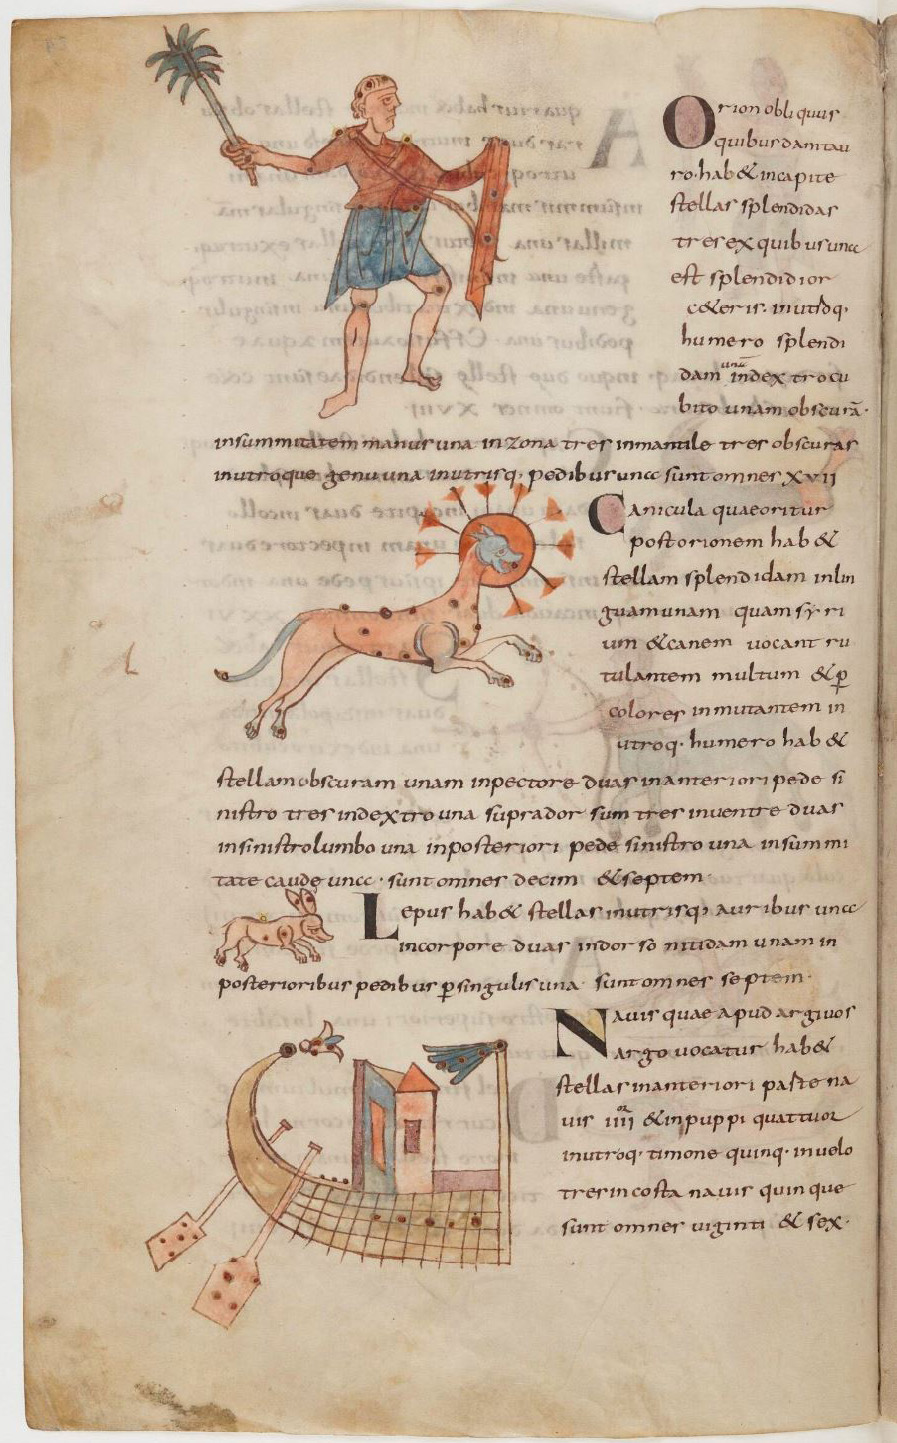 Orion obliquus
quibusdam tau
ro· hab& incapite
stellas splendidas
tres ex quibus una
est splendidior
c&eris· inutroq·
humero splendi
dam unā index tro cu
bito unam obscurā·
insummitatem manus una inzona tres inmantile tres obscuras
inutroque genu una inutrisq; pedibus una sunt omnes xvii
Canicula quae oritur
post orionem hab&
stellam splendidam inlin
gua unam quam syri
um &canem uocant ru
tulantem multum &ꝑ
colores inmutantem in
utroq· humero hab&
stellam obscuram unam inpectore duas inanteriori pede si
nistro tres indextro una supra dorsum tres inuentre duas
insinistro lumbo una inposteriori pede sinistro una insummi
tate caude una· sunt omnes decim &septem·
Lepus hab& stellas inutrisq; auribus una
incorpore duas indorso nitidam unam in
posterioribus pedibus ꝑ singulis una· sunt omnes septem·
Nauis quae apud argiuos
argo uocatur hab&
stellas inanteriori paste na
uis iiii or &inpuppi quattuor
inutroq· timone quinq· inuelo
tres in costa nauis quinque
sunt omnes uiginti &sex·